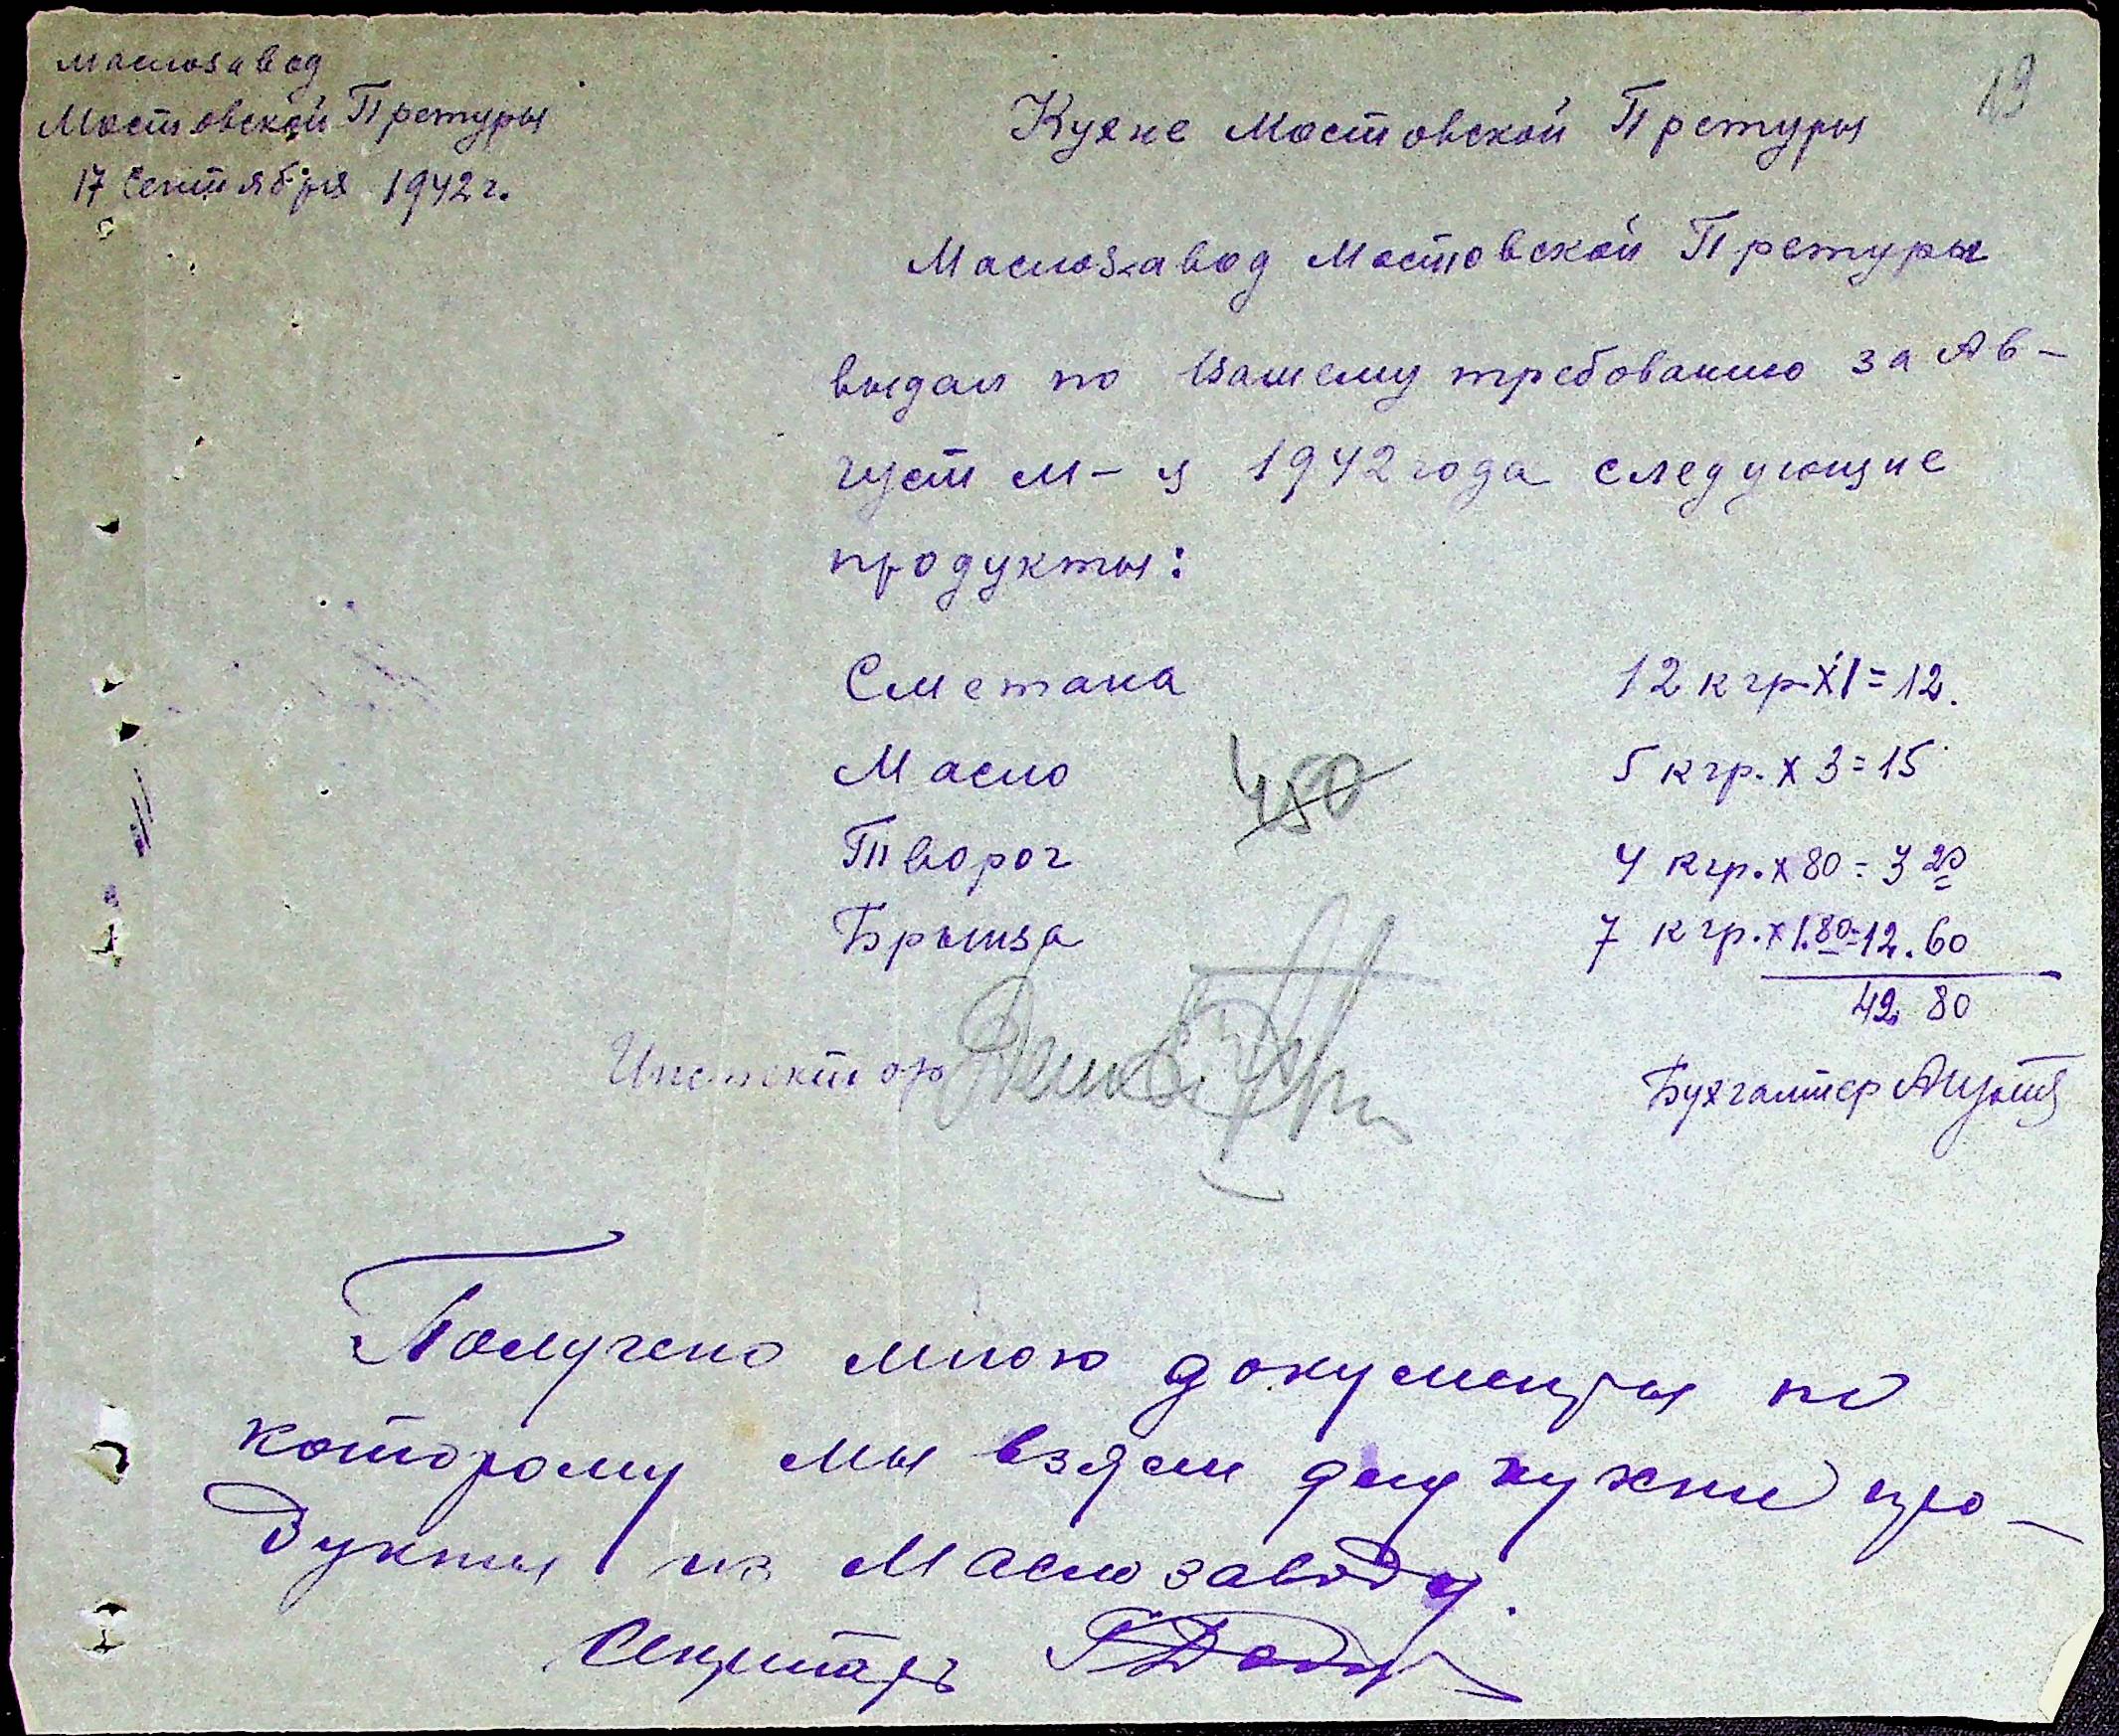 Маслозавод
Мостовской Претуры
17 Сентября 1942 г.
19
Кухне Мостовской Претуры
Маслозавод Мостовской Претуры
выдал по Вашему требованию за Ав-
густ м-ц 1942 года следующие
продукты:
Сметана 12 кгр х 1 = 12.
Масло 5 кгр. х 3 = 15
450
Творог 4 кгр. х 80 = 3 20
Брынза 7 кгр. х 1.80 = 12.60
42 80
Инспектор
Бухгалтер
Получено мною документы по
которому мы взяли для кухни про-
дукты из Маслозаводу.
Секретарь